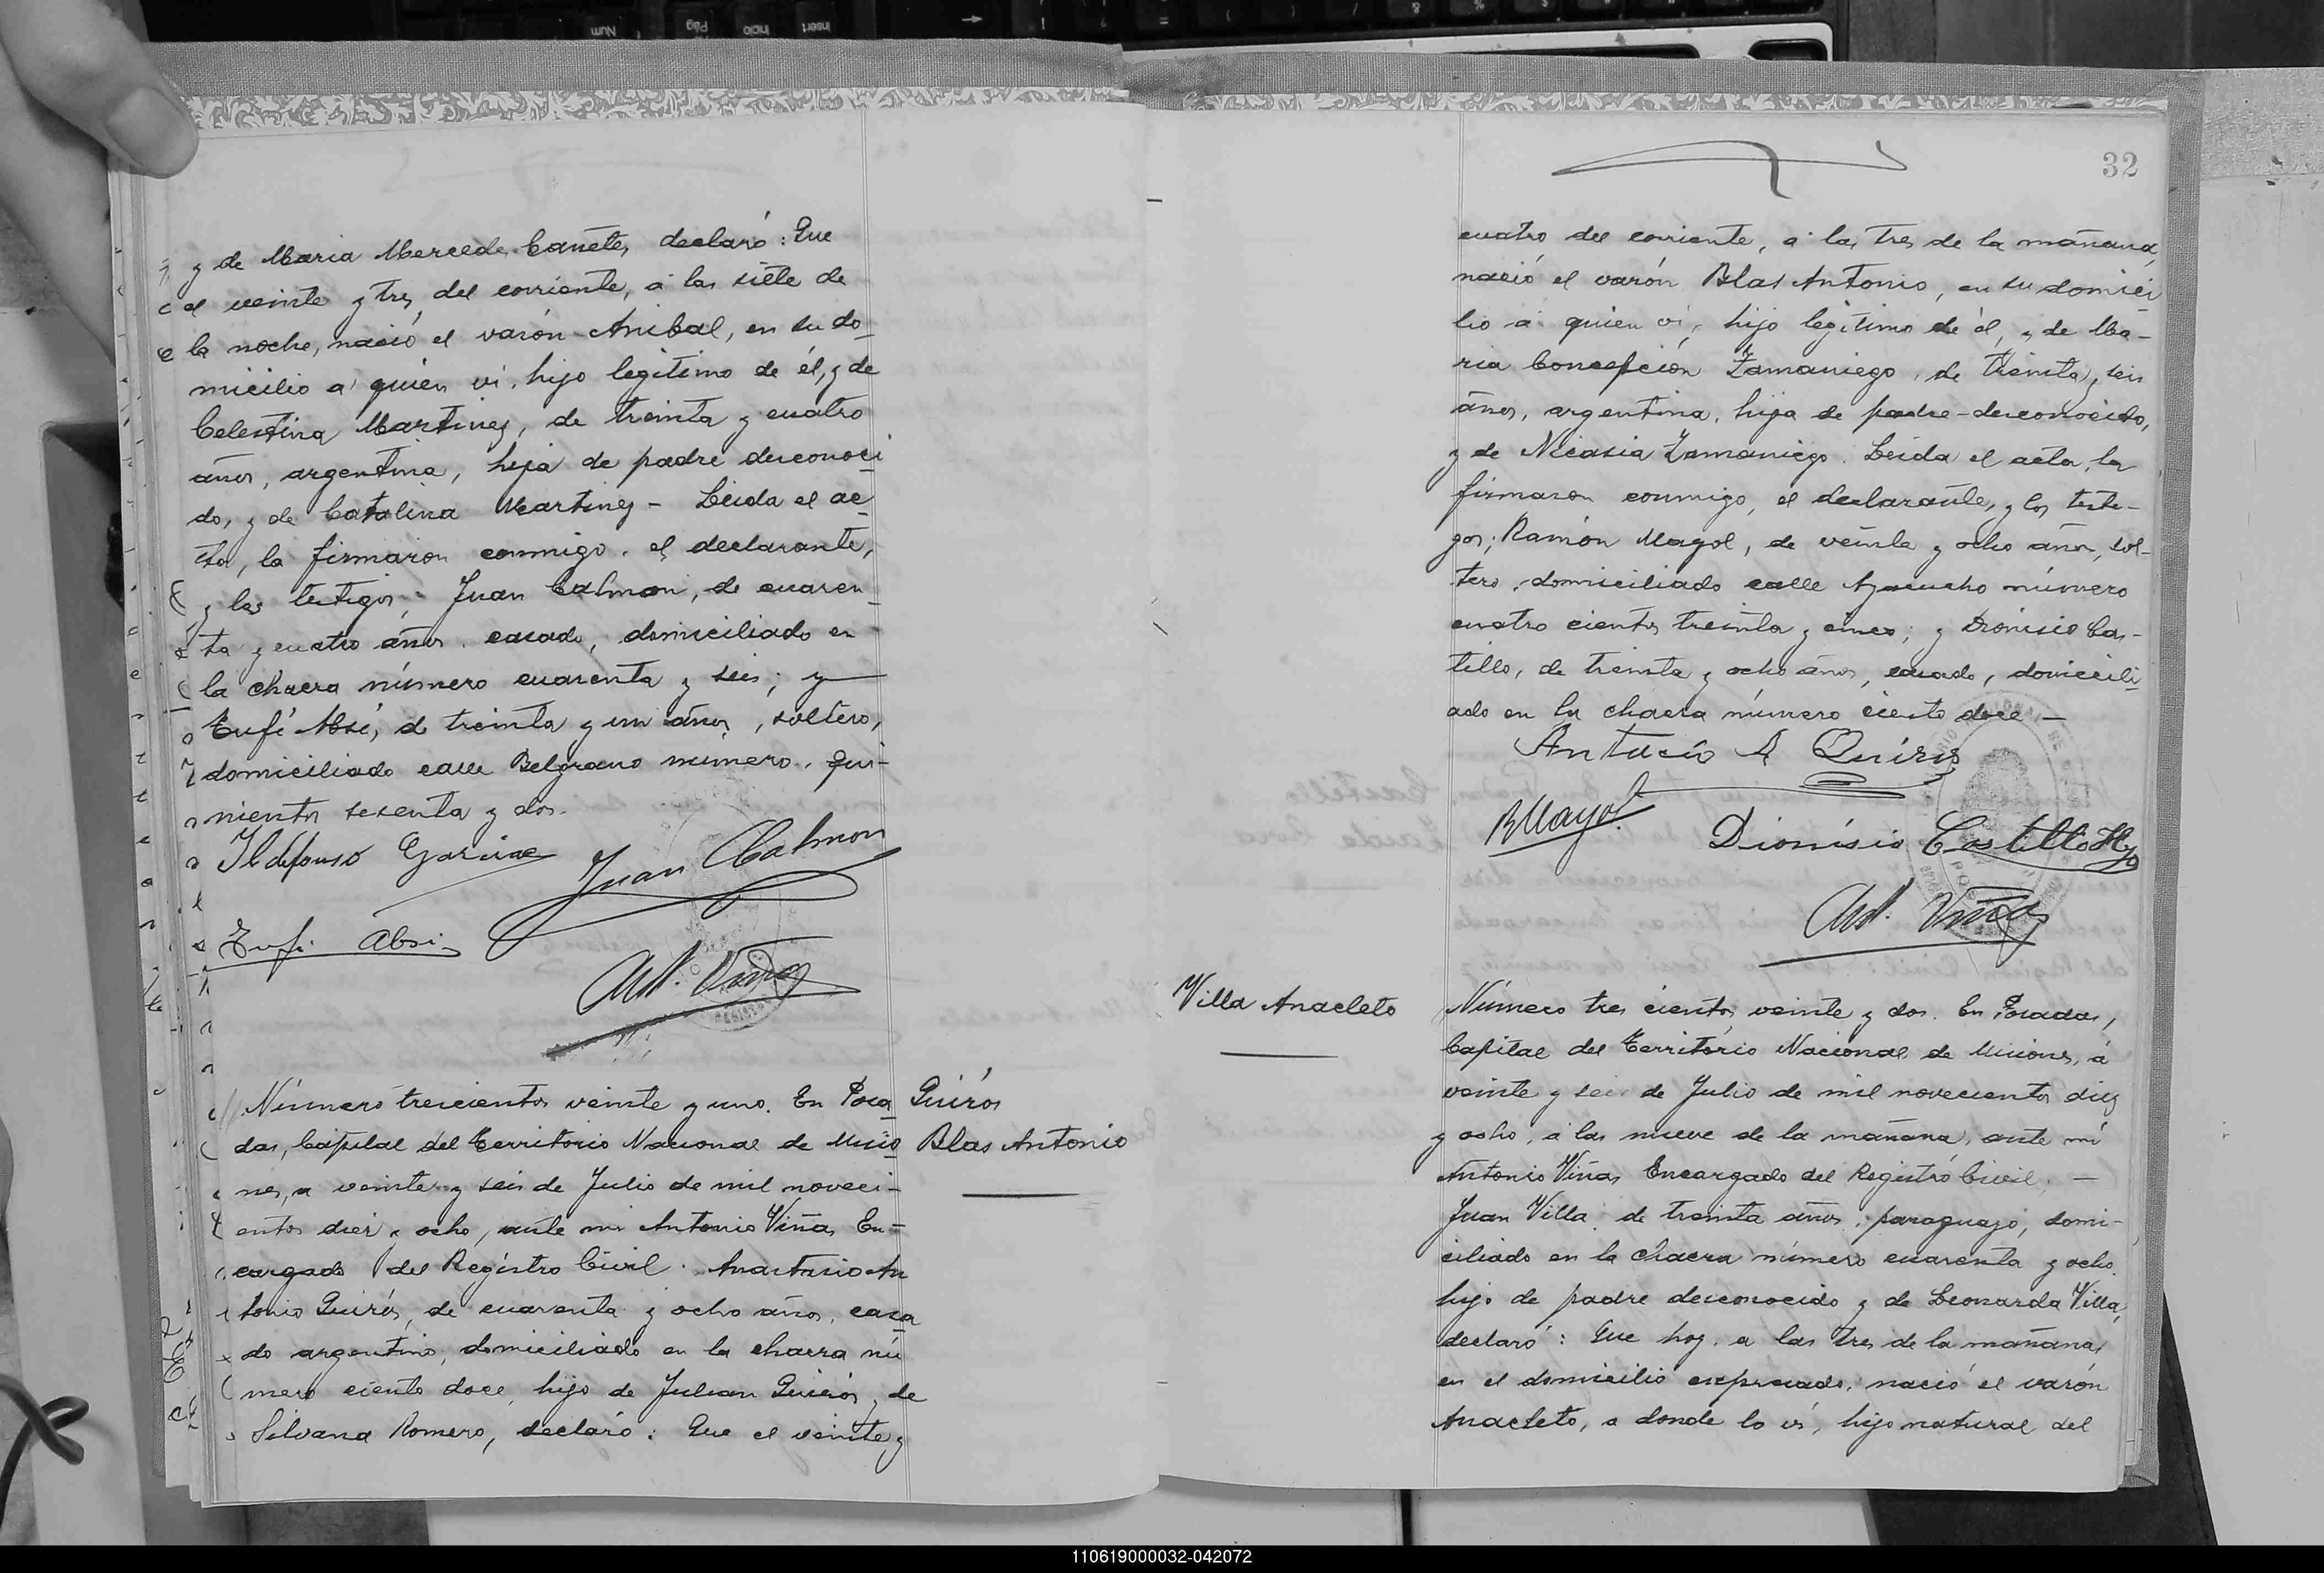 y de Maria Mercedes Cañete, declaró: Que
el veinte y tres, del corriente, a las siete de
la noche, nació el varón Anibal, en su do
micilio a quien vi, hijo legitimo de él, y de
Celestina Martinez, de treinta y cuatro
años, argentina, hija de padre desconoci
do, y de Catalina Martinez - Leida el ac
ta, la firmaron conmigo, el declarante,
y los testigos; Juan Calmon, de cuaren
ta y cuatro años, casado, domiciliado en
la chacra número cuarenta y seis; y
Eufi Absi, de treinta y un años, soltero,
domiciliado calle Belgrano número, qui-
nientos sesenta y dos.
Ildefonso Garcia
Juan Calmon
Eufi Absi
Ant. Viñas
Quirós
Blas Antonio
Número trescientos veinte y uno. En Posa
das, Capital del Territorio Nacional de Misio
nes, a veinte y seis de Julio de mil noveci-
entos diez y ocho, ante mi Antonio Viñas, En-
cargado del Registro Civil. Anastasio An
tonio Quirós, de cuarenta y ocho años, casa
do argentino, domiciliado en la chacra nú
mero ciento doce, hijo de Julian Quirós, y de
Silvana Romero, declaró: Que el veinte y
32
cuatro del corriente, a las tres de la mañana,
nació el varón Blas Antonio, en su domici
lio a quien vi, hijo legitimo de él, y de Ma-
ria Concepción Zamaniego, de treinta y seis
años, argentina, hija de padre desconocido,
y de Nicasia Zamaniego. Leida el acta, la
firmaron conmigo, el declarante, y los testi-
gos; Ramón Mayol, de veinte y ocho años, sol-
tero, domiciliado calle Ayacucho número
cuatro cientos treinta y cinco; y Dionisio Cas-
tillo, de treinta y ocho años, casado, domicili
ado en la chacra número ciento doce -
Antacio A Quirós
R Mayol
Dionisio Castillo Hijo
Ant. Viñas
Villa Anacleto
Número tres cientos veinte y dos. En Posadas,
Capital del Territorio Nacional de Misiones, á
veinte y seis de Julio de mil novecientos diez
y ocho, a las nueve de la mañana, ante mi
Antonio Viñas, Encargado del Registro Civil. -
Juan Villa, de treinta años, paraguayo, domi-
ciliado en la chacra número cuarenta y ocho
hijo de padre desconocido y de Leonarda Villa,
declaró: Que hoy, a las tres de la mañana,
en el domicilio expresado, nació el varón
Anacleto, a donde lo vi, hijo natural del
110619000032-042072